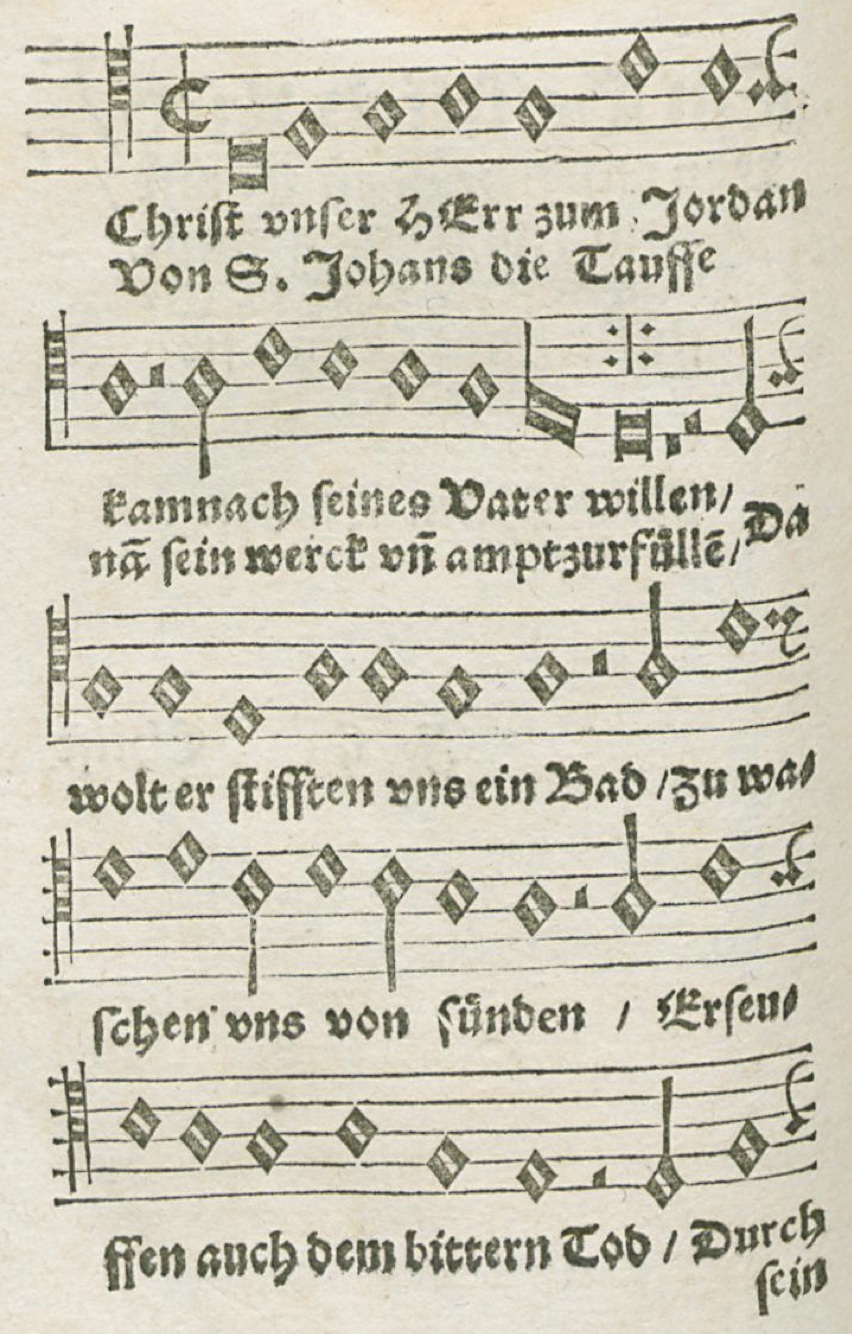 Chriſt vnſer HErr zum Jordan
Von S. Johans die Tauffe
kamnach ſeines Vater willen/
nã ſein werck vñ amptzurfüllẽ/ Da
wolt er ſtifften vns ein Bad /zu wa⸗
ſchen vns von ſünden / Erſeu⸗
ffen auch dem bittern Tod / Durch
ſein